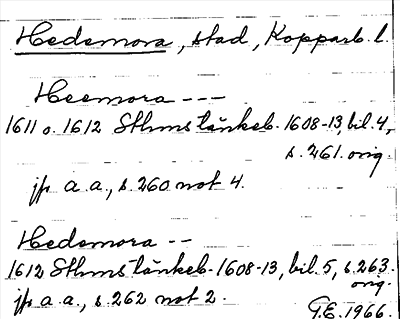 Hedemora, stad, Kopparb. l.
Heemora ---
1611 o. 1612 Sthms tänkeb. 1608-13, bil. 4,
s. 261. orig.
jfr a.a., s. 260 not 4.
Hedemora --
1612 Sthms tänkeb. 1608-13, bil. 5, s. 263.
orig.
jfr a.a., s. 262 not 2.
G.E. 1966.